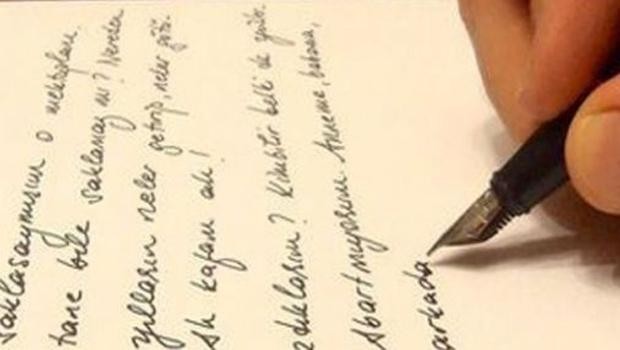 saklasaymışım o mektupları.
tane bile saklamaz mı? Nereden
yılların neler getirip, neler götü
Ah kafam ah!
zdıklarım? Kimbilir belki de yazıl
Abartmıyorum. Anneme, babama,
arkada